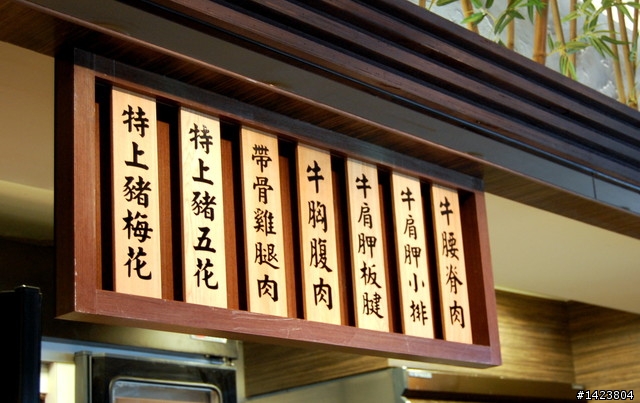 特上豬梅花
特上豬五花
帶骨雞腿肉
牛胸腹肉
牛肩胛板腱
牛肩胛小排
牛腰脊肉
#1423804